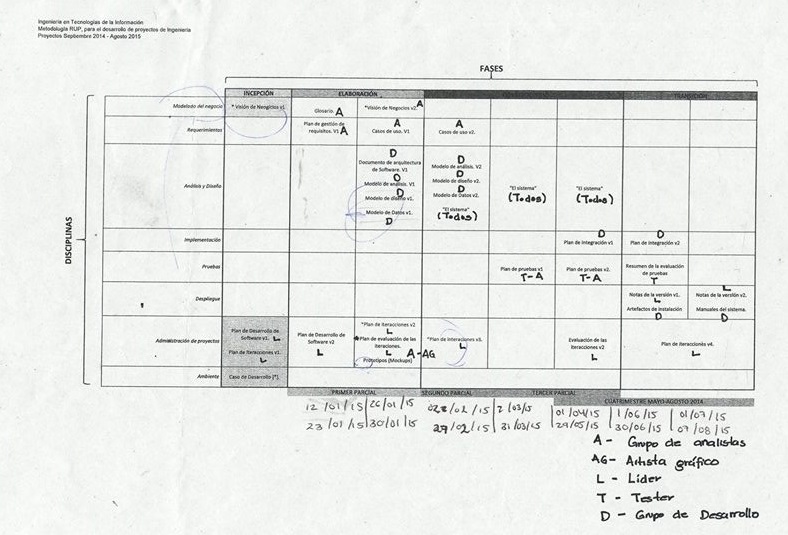 Ingeniería en Tecnologías de la Información
Metodología RUP, para el desarrollo de proyectos de Ingeniería
Proyectos Septiembre 2014 - Agosto 2015
FASES
INCEPCIÓN ELABORACIÓN TRANSICIÓN
DISCIPLINAS
Modelado del negocio
* Visión de Neogicios v1.
Glosario. A
*Visión de Negocios v2. A
Requerimientos
Plan de gestión de
requisitos. V1 A
A
Casos de uso. V1
A
Casos de uso v2.
Análisis y Diseño
D
Documento de arquitectura
de Software. V1
D
Modelo de análisis. V1
D
Modelo de diseño v1.
Modelo de Datos v1.
D
D
Modelo de análisis. V2
D
Modelo de diseño v2.
D
Modelo de Datos v2.
"El sistema"
(Todos)
"El sistema"
(Todos)
"El sistema"
(Todos)
Implementación
D
Plan de integración v1
D
Plan de integración v2
Pruebas
Plan de pruebas v1
T-A
Plan de pruebas v2.
T-A
Resumen de la evaluación
de pruebas
T
Despliegue
Notas de la versión v1.
L
Artefactos de instalación
D
L
Notas de la versión v2.
Manuales del sistema.
D
Administración de proyectos
Plan de Desarrollo de
Software v1. L
Plan de Iteracciones v1.
L
Plan de Desarrollo de
Software v2
L
*Plan de iteracciones v2
L
*Plan de evaluación de las
iteraciones.
L A-AG
Prototipos (Mockups)
*Plan de iteracciones v3.
L
Evaluación de las
iteracciones v2
L
Plan de iteracciones v4.
L
Ambiente
Caso de Desarrollo (*).
PRIMER PARCIAL SEGUNDO PARCIAL TERCER PARCIAL CUATRIMESTRE MAYO-AGOSTO 2014
12/01/15 26/01/15 02/02/15 2/03/15 01/04/15 1/06/15 01/07/15
23/01/15 30/01/15 27/02/15 31/03/15 29/05/15 30/06/15 07/08/15
A - Grupo de analistas
AG - Artista gráfico
L - Líder
T - Tester
D - Grupo de Desarrollo